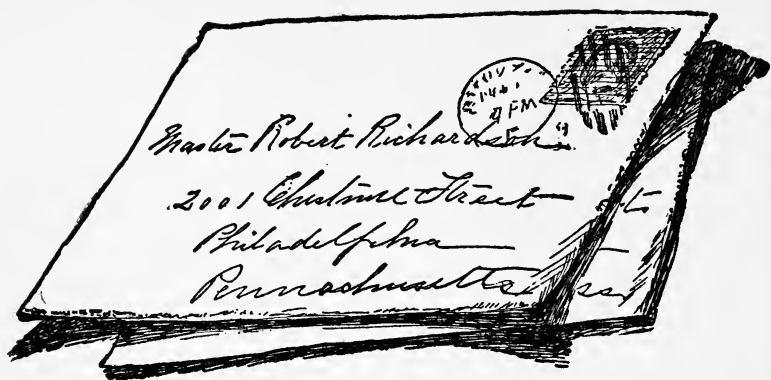 4 PM
Master Robert Richardson
2001 Chestnut Street
Philadelphia
Pennachusetts